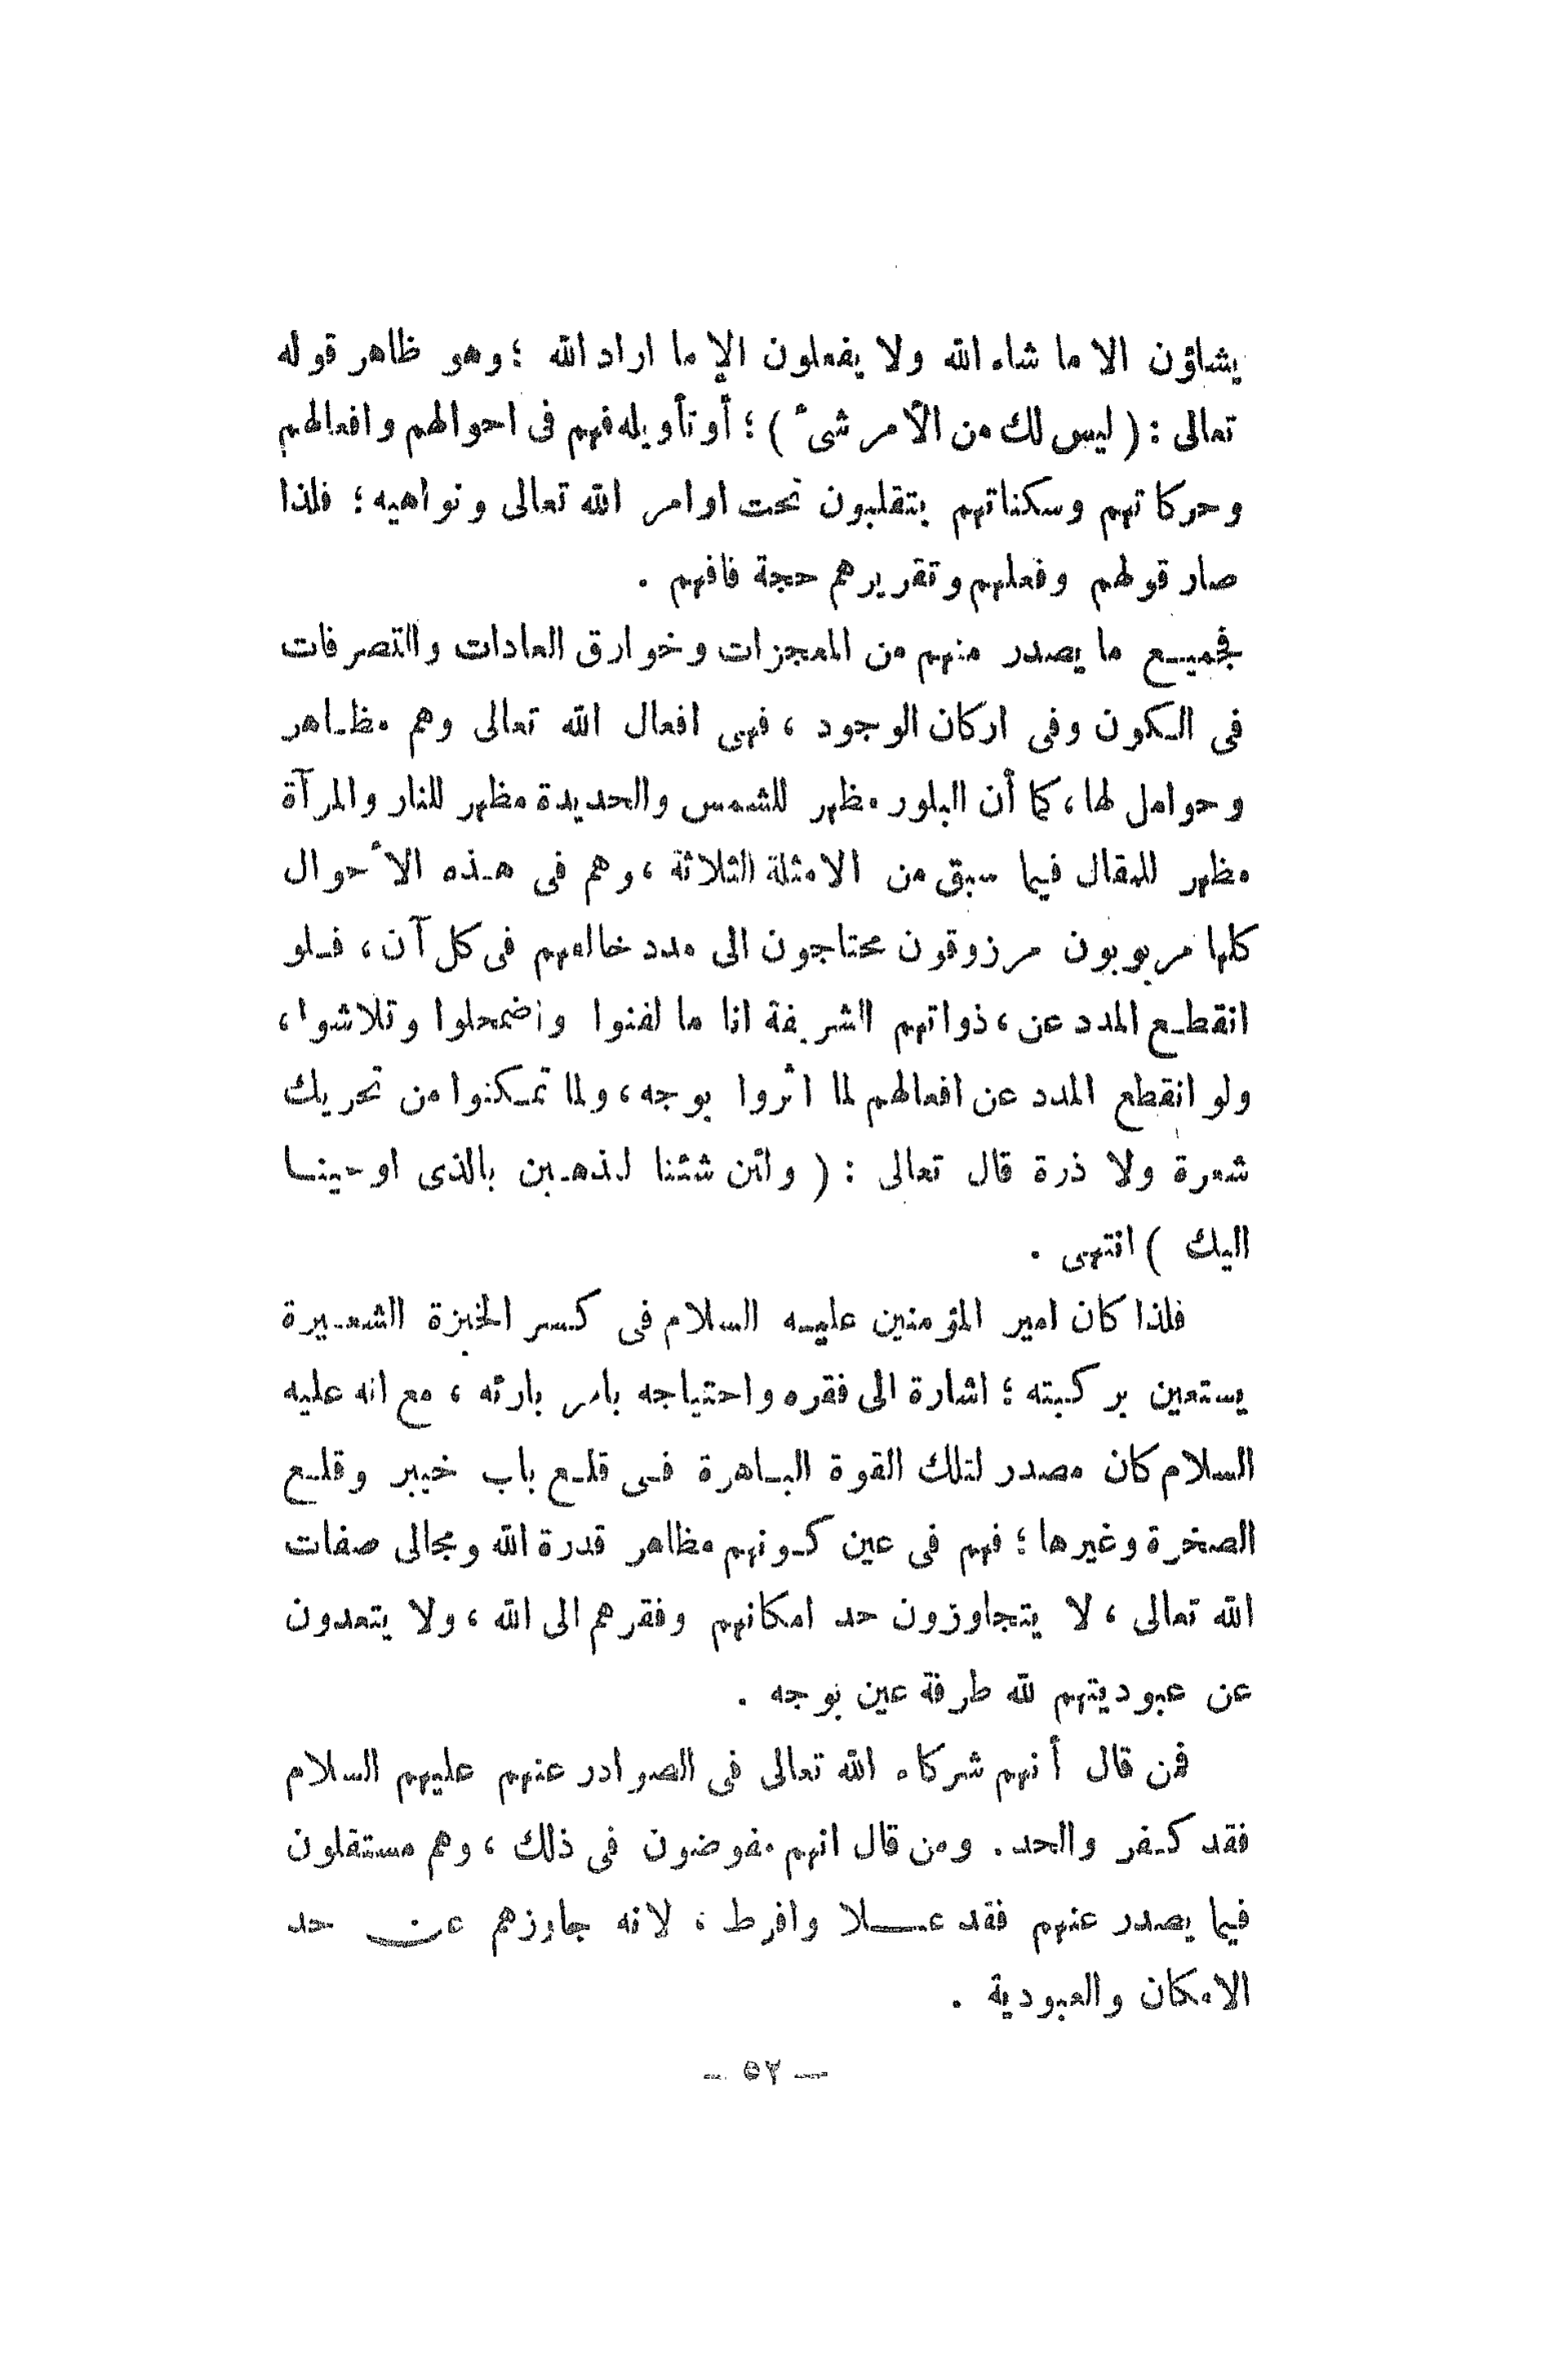 يشاؤن الا ما شاء الله ولا يفعلون الإ ما اراد الله ؛ وهو ظاهر قوله
تعالى : ( ليس لك من الأمر شىء ) ؛ أو تأويله فهم فى احوالهم وافعالهم
وحركاتهم وسكناتهم يتقلبون تحت اوامر الله تعالى ونواهيه ؛ فلذا
صار قولهم وفعلهم وتقريرهم حجة فافهم .
فجميع ما يصدر منهم من المعجزات وخوارق العادات والتصرفات
فى الكون وفى اركان الوجود ، فهى افعال الله تعالى وهم مظاهر
وحوامل لها ، كما أن البلور مظهر للشمس والحديدة مظهر للنار والمرآة
مظهر للمقال فيما سبق من الامثلة الثلاثة ، وهم فى هذه الأحوال
كلها مربوبون مرزوقون محتاجون الى مدد خالقهم فى كل آن ، فلو
انقطع المدد عن ، ذواتهم الشريفة انا ما لفنوا واضمحلوا وتلاشوا ،
ولو انقطع المدد عن افعالهم لما اثروا بوجه ، ولما تمكنوا من تحريك
شعرة ولا ذرة قال تعالى : ( ولئن شئنا لنذهبن بالذى اوحينا
اليك ) انتهى .
فلذا كان امير المؤمنين عليه السلام فى كسر الخبزة الشعيرة
يستعين بركبته ؛ اشارة الى فقره واحتياجه بامر بارئه ، مع انه عليه
السلام كان مصدر لتلك القوة الباهرة فى قلع باب خيبر وقلع
الصخرة وغيرها ؛ فهم فى عين كونهم مظاهر قدرة الله ومجالى صفات
الله تعالى ، لا يتجاوزون حد امكانهم وفقرهم الى الله ، ولا يتعدون
عن عبوديتهم لله طرفة عين بوجه .
فمن قال أنهم شركاء الله تعالى فى الصوادر عنهم عليهم السلام
فقد كفر والحد . ومن قال انهم مفوضون فى ذلك ، وهم مستقلون
فيما يصدر عنهم فقد علا وافرط ، لانه جاوزهم عن حد
الامكان والعبودية .
— ٥٢ —